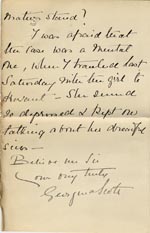 matters stand?
I was afraid that
the case was a mental
one, when I travelled last
Saturday with the girl to
She seemed
so depressed & kept on
talking about his dreadful
sins —
Believe me Sir
Yours very truly
Georgina Scott